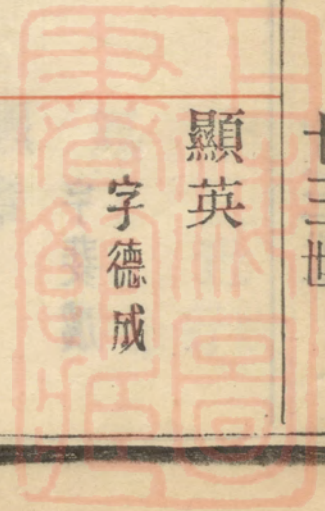 十三世
顯英
字德成